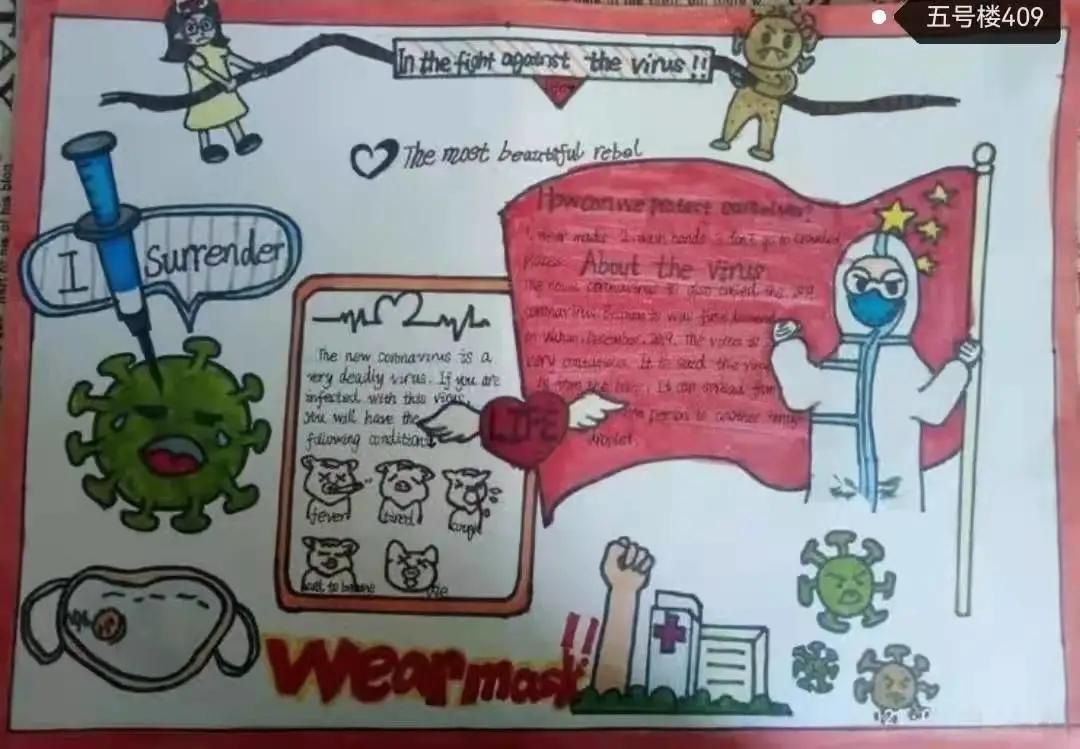 五号楼409
In the fight against the virus!!
The most beautiful rebel
How can we protect ourselves?
1. wear masks 2. wash hands 3. don't go to crowded
places.
About the virus
The novel coronavirus is also called the 2019
coronavirus
on Wuhan, December, 2019. The voices is
very contagious. It is said the virus
is from the bats. It can spread from
one person to another through
droplet.
I Surrender
The new coronavirus is a
very deadly virus. If you are
infected with this virus,
you will have the
following conditions
LIFE
fever tired cough
die
wear mask!!